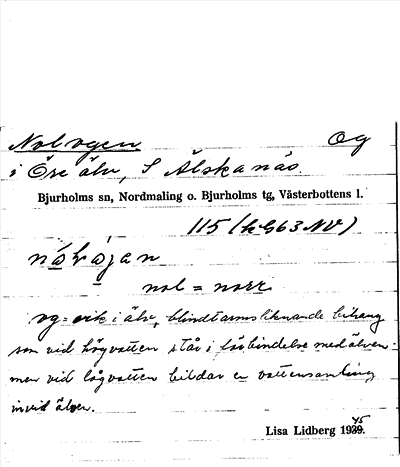 Nolvgen Og
i Öre älv, S Älskanäs.
Bjurholms sn, Nordmaling o. Bjurholms tg, Västerbottens l.
115 ( 63 NV)
nol = norr
og = vik i älv, blindtarmsliknande bihang
som vid högvatten står i förbindelse med älven
men vid lågvatten bildar en vattensamling
invid älven.
Lisa Lidberg 1939. 45